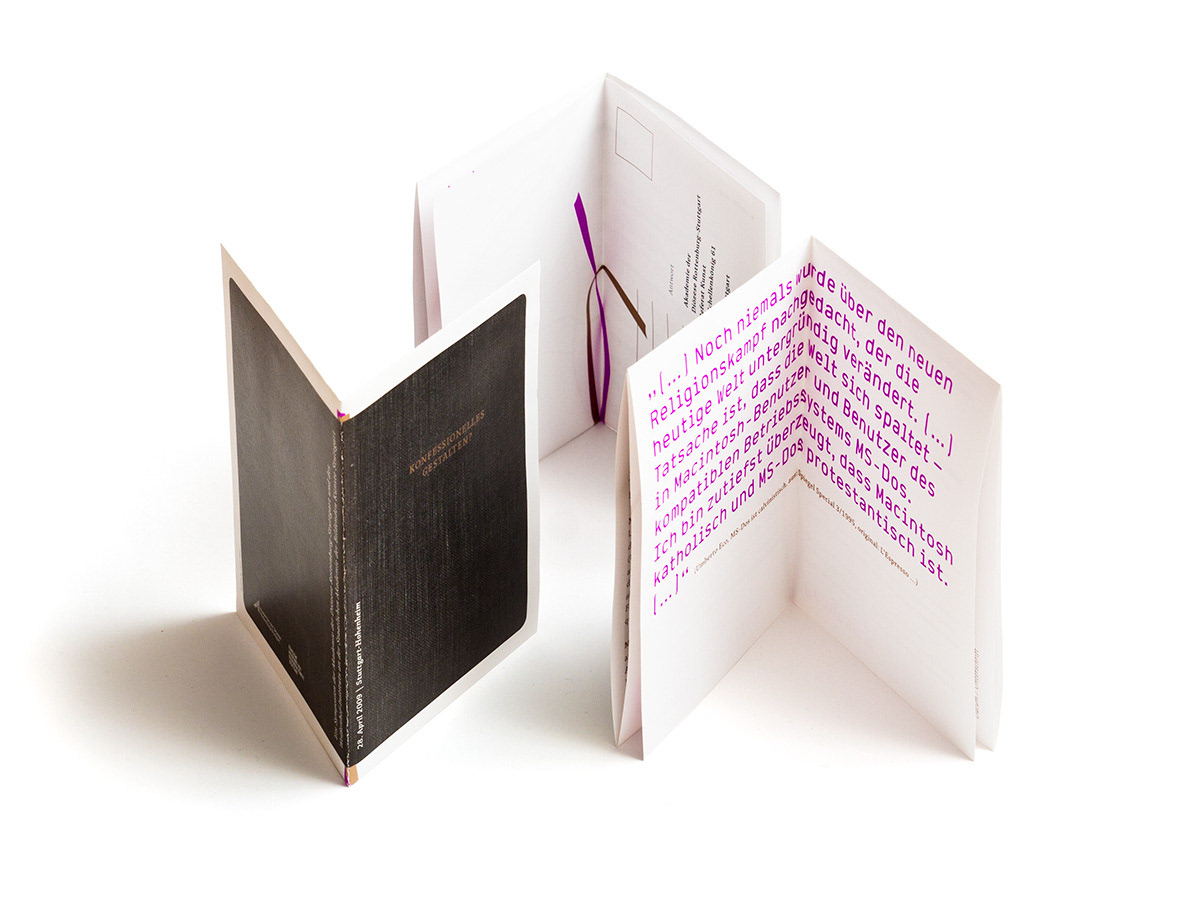 KONFESSIONELLES
GESTALTEN?
28. April 2009 | Stuttgart-Hohenheim
Antwort
Akademie der
Diözese Rottenburg-Stuttgart
Kunst
61
„(...) Noch niemals wurde über den neuen
Religionskampf nachgedacht, der die
heutige Welt untergründig verändert. (...)
Tatsache ist, dass die Welt sich spaltet –
in Macintosh-Benutzer und Benutzer des
kompatiblen Betriebssystems MS-Dos.
Ich bin zutiefst überzeugt, dass Macintosh
katholisch und MS-Dos protestantisch ist.
(...)“
(Umberto Eco, MS-Dos ist calvinistisch, aus: Spiegel Special 3/1995, original: L'Espresso ...)